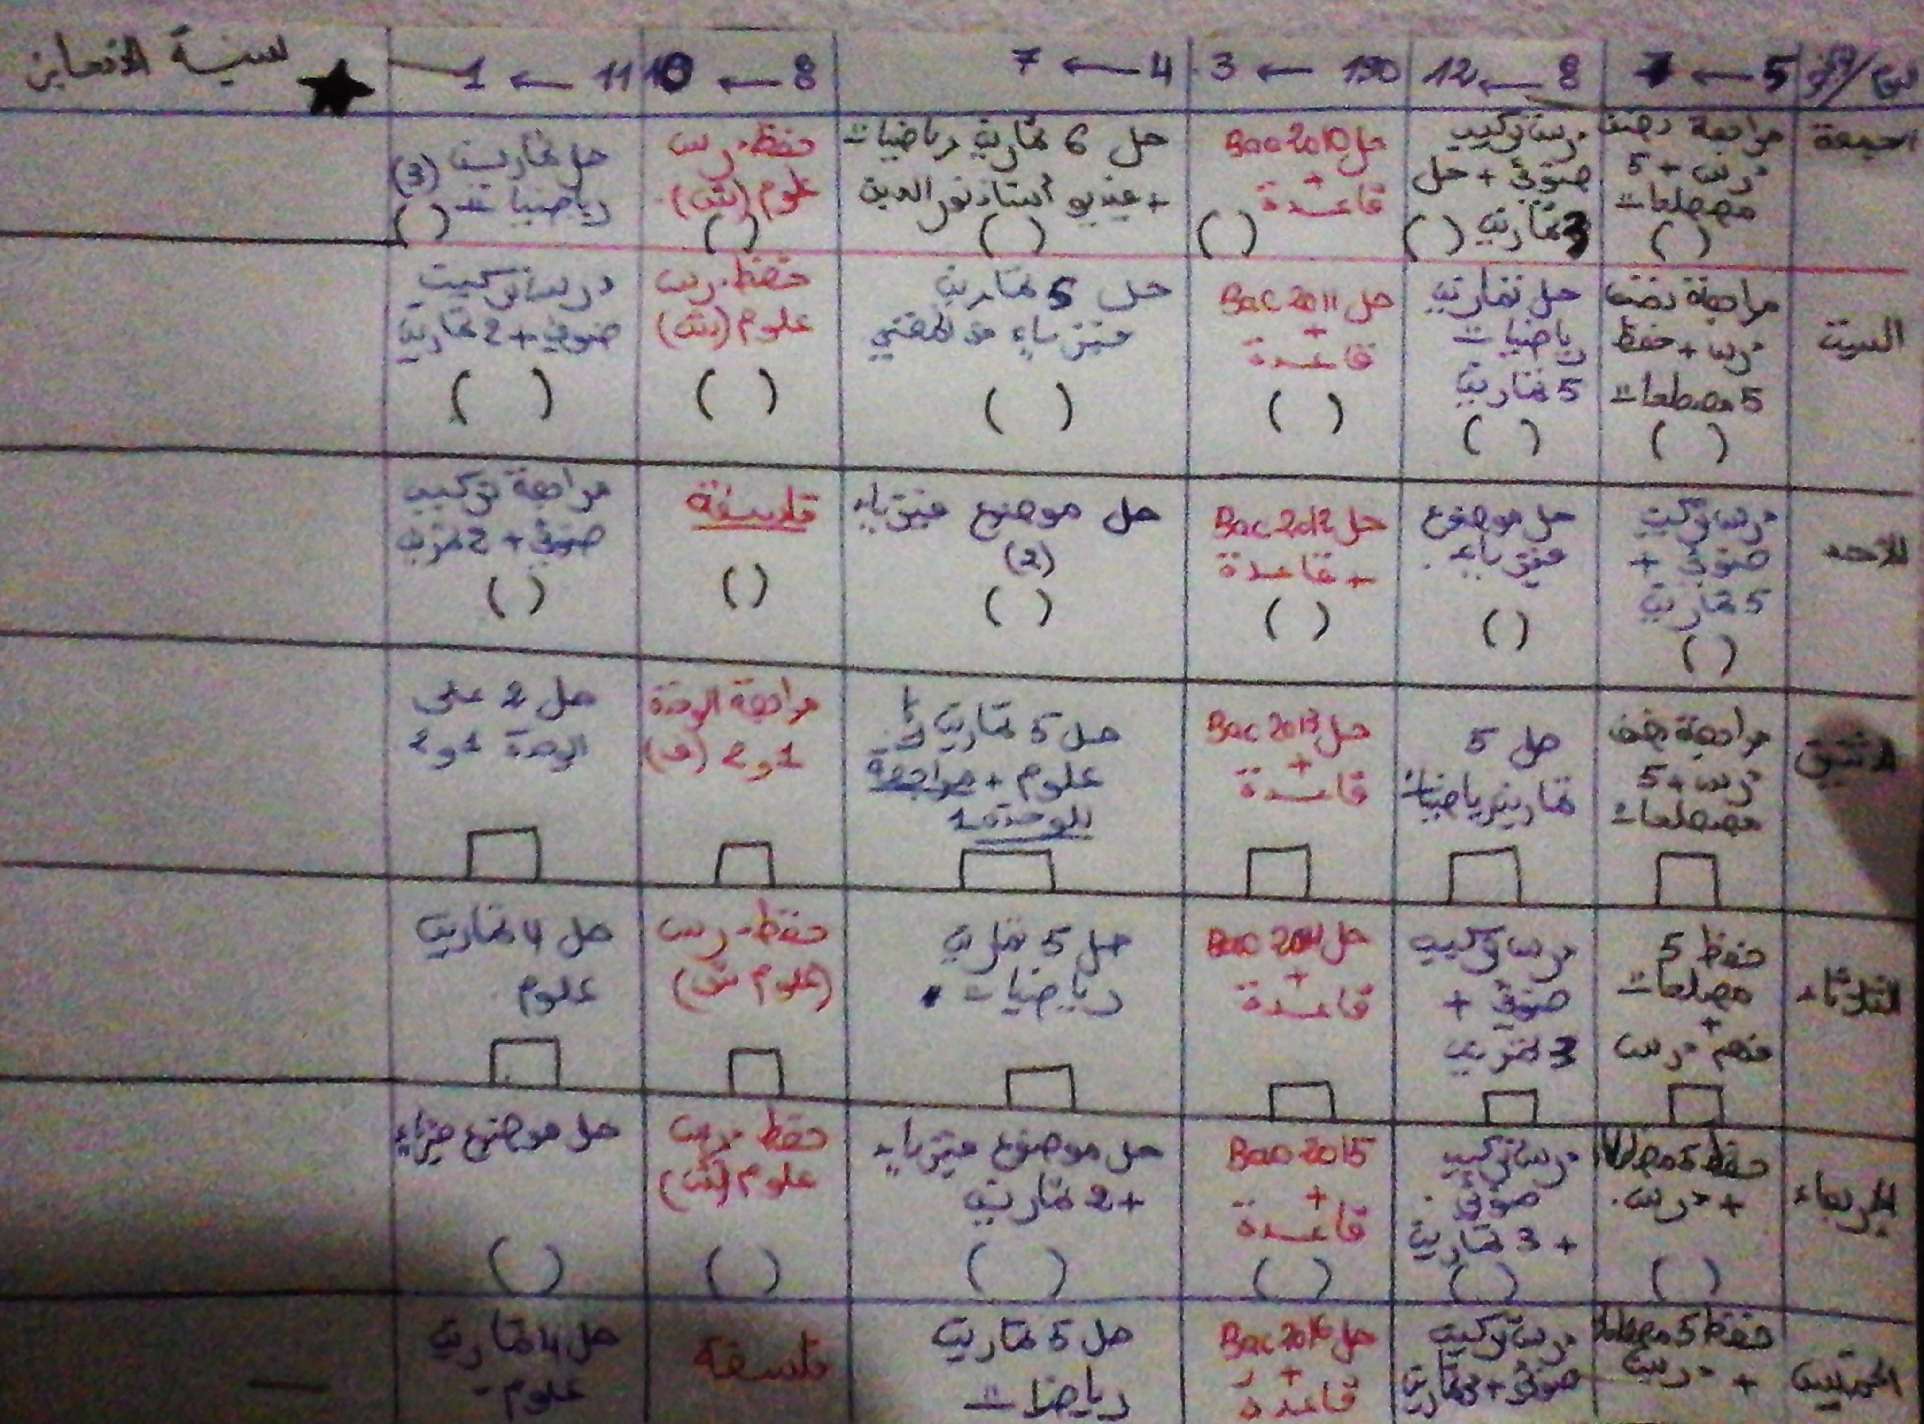 يوم/وقت 5 ← 7 8 ← 12 130 ← 3 4 ← 7 8 ← 10 11 ← 1 نسبة الانجاز
الجمعة
مراجعة نصف
درس + 5
مصطلحات
( )
درس تركيب
ضوئي + حل
3 تمارين ( )
حل Bac 2010
+
قاعدة
( )
حل 6 تمارين رياضيات
+ فيديو أستاذ نور الدين
( )
حفظ درس
علوم (نش)
( )
حل تمارين (3)
رياضيات
( )
السبت
مراجعة نصف
درس + حفظ
5 مصطلحات
( )
حل تمارين
رياضيات
5 تمارين
( )
حل Bac 2011
+
قاعدة
( )
حل 5 تمارين
فيزياء
( )
حفظ درس
علوم (نش)
( )
درس تركيب
ضوئي + 2 تمارين
( )
الأحد
درس تركيب
ضوئي +
5 تمارين
( )
حل موضوع
فيزياء
( )
حل Bac 2012
+ قاعدة
( )
حل موضوع فيزياء
(2)
( )
فلسفة
( )
مراجعة تركيب
ضوئي + 2 تمرين
( )
الاثنين
مراجعة نصف
درس + 5
مصطلحات
حل 5
تمارين رياضيات
حل Bac 2013
+
قاعدة
حل 5 تمارين
علوم + مراجعة
للوحدة 1
مراجعة الوحدة
1 و 2 (ف)
حل 2 على
الوحدة 1 و 2
الثلاثاء
حفظ 5
مصطلحات
+
فهم درس
درس تركيب
ضوئي +
3 تمرين
حل Bac 2014
+
قاعدة
حل 5 تمارين
رياضيات
حفظ درس
(علوم نش)
حل 4 تمارين
علوم
الأربعاء
حفظ 5
+ درس
( )
درس تركيب
ضوئي
+ 3 تمارين
( )
Bac 2015
+
قاعدة
( )
حل موضوع فيزياء
+ 2 تمارين
( )
حفظ درس
علوم (نش)
( )
حل موضوع فيزياء
( )
الخميس
حفظ 5
+ درس
درس تركيب
ضوئي + تمارين
حل Bac 2016
+
قاعدة
حل 5 تمارين
رياضيات
فلسفة
حل 4 تمارين
علوم